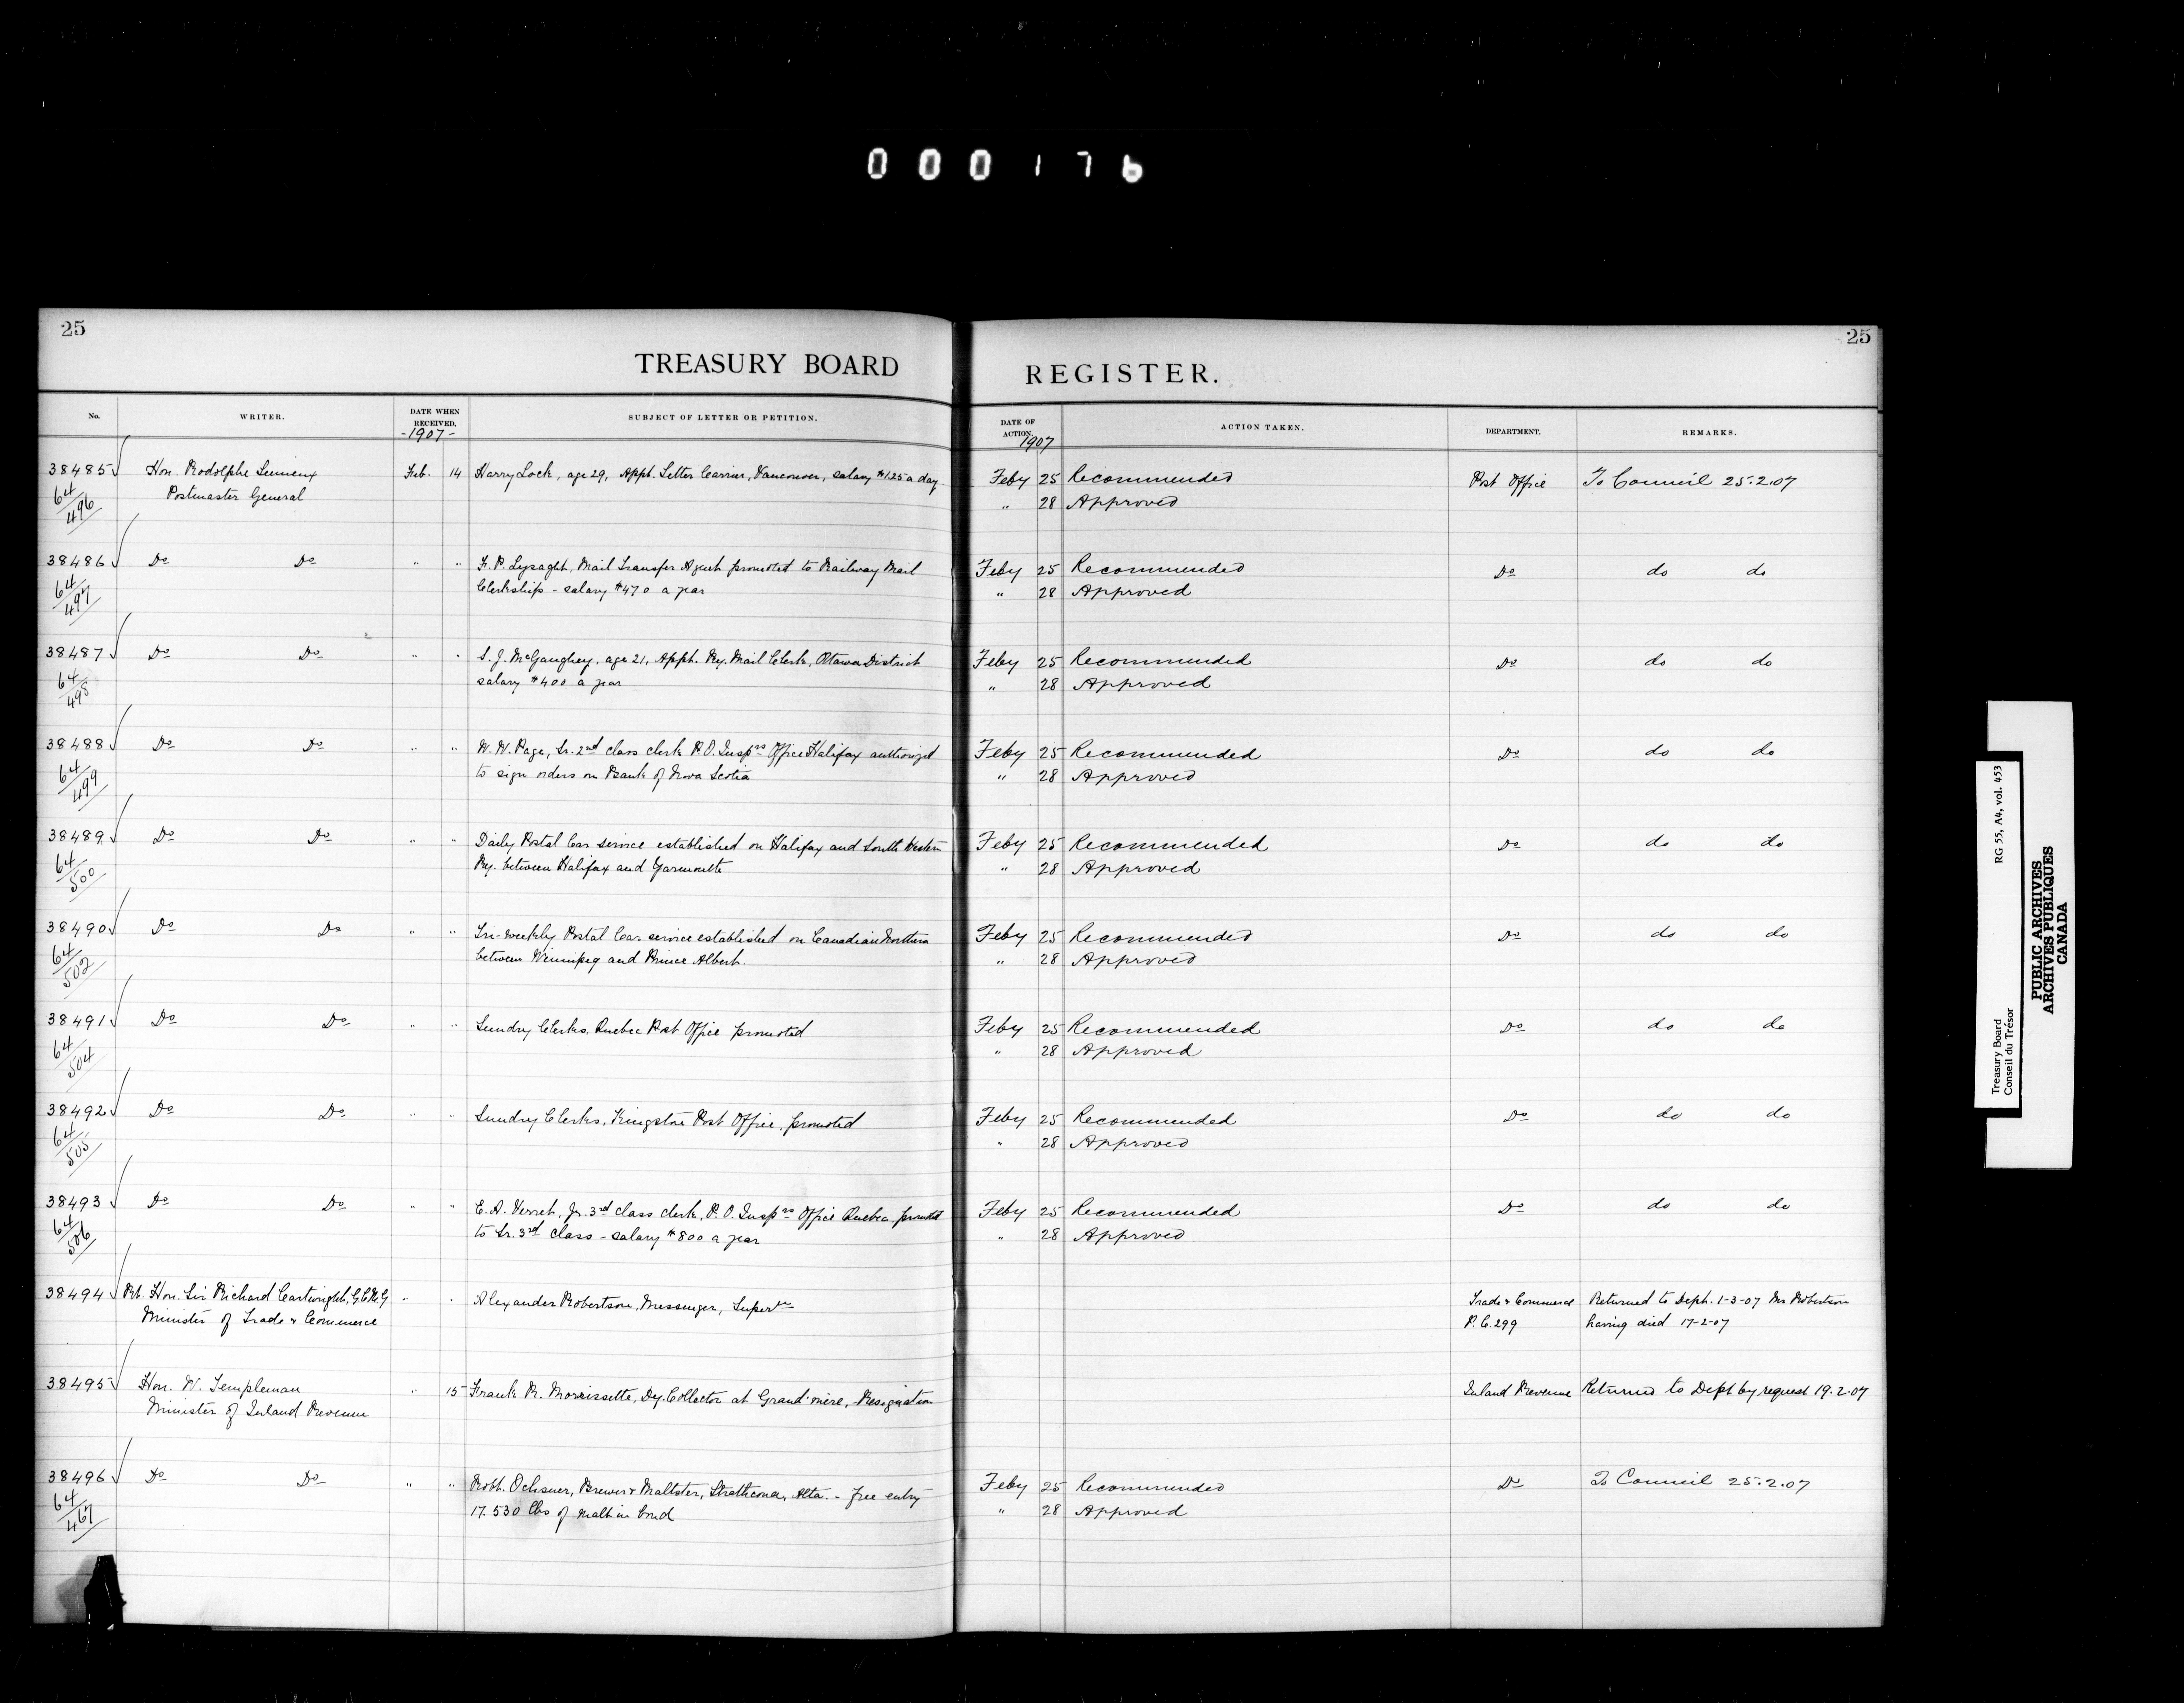 000176
25
25
TREASURY BOARD REGISTER.
No. WRITER. DATE WHEN RECEIVED. SUBJECT OF LETTER OR PETITION. DATE OF ACTION. ACTION TAKEN. DEPARTMENT. REMARKS.
-1907- 1907
38485 Hon. Rodolphe Lemieux Feb. 14 Harry Lock, age 29, Appt. Letter Carrier, Vancouver, salary $1.25 a day Feby 25 Recommended Post Office To Council 25.2.07
64/496 Postmaster General " 28 Approved
38486 Do Do " " F. P. Lysaght, Mail Transfer Agent promoted to Railway Mail Feby 25 Recommended Do do do
64/497 Clerkship - salary $470 a year " 28 Approved
38487 Do Do " " S. J. McGaughey, age 21, Appt. Ry. Mail Clerk, Ottawa District Feby 25 Recommended Do do do
64/498 salary $400 a year " 28 Approved
38488 Do Do " " W. W. Page, Sr. 2nd class clerk P.O. Insprs Office Halifax authorized Feby 25 Recommended Do do do
64/499 to sign orders on Bank of Nova Scotia " 28 Approved
38489 Do Do " " Daily Postal Car service established on Halifax and South Western Feby 25 Recommended Do do do
64/500 Ry. between Halifax and Yarmouth " 28 Approved
38490 Do Do " " Tri-weekly Postal Car service established on Canadian Northern Feby 25 Recommended Do do do
64/502 between Winnipeg and Prince Albert. " 28 Approved
38491 Do Do " " Sundry Clerks, Quebec Post Office promoted Feby 25 Recommended Do do do
64/504 " 28 Approved
38492 Do Do " " Sundry Clerks, Kingston Post Office, promoted Feby 25 Recommended Do do do
64/505 " 28 Approved
38493 Do Do " " E. A. Verret, Jr. 3rd class clerk, P.O. Insprs Office Quebec promoted Feby 25 Recommended Do do do
64/506 to Sr. 3rd class - salary $800 a year " 28 Approved
38494 Rt. Hon. Sir Richard Cartwright, G.C.M.G " " Alexander Robertson, Messenger, Superan Trade & Commerce Returned to Dept. 1-3-07 Mr Robertson
Minister of Trade & Commerce P.C. 299 having died 17-2-07
38495 Hon. W. Templeman " 15 Frank R. Morrissette, Dy. Collector at Grand'mère, Resignation Inland Revenue Returned to Dept by request 19.2.07
Minister of Inland Revenue
38496 Do Do " " Robt. Ochsner, Brewer & Maltster, Strathcona, Alta. - free entry Feby 25 Recommended Do To Council 25.2.07
64/467 17.530 lbs of malt in bond " 28 Approved
Treasury Board RG 55, A4, vol. 453
Conseil du Trésor
PUBLIC ARCHIVES
ARCHIVES PUBLIQUES
CANADA